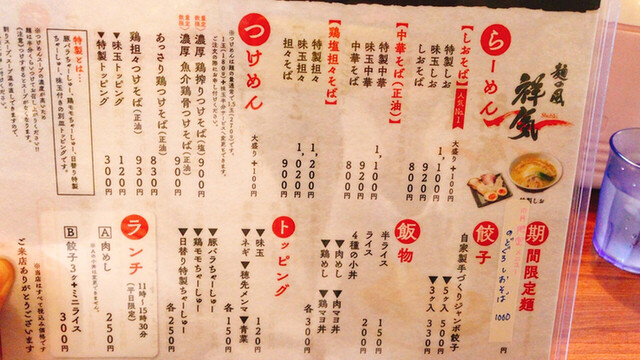 麺の風
祥気
らーめん
大盛り +100円
【しおそば】
人気No.1
しおそば 800円
味玉しお 920円
特製しお 1,100円
【中華そば(正油)】
中華そば 800円
味玉中華 920円
特製中華 1,100円
【鶏塩担々そば】
担々そば 900円
味玉担々 1,020円
特製担々 1,200円
つけめん
大盛り +100円
濃厚 鶏搾りつけそば(塩) 900円
濃厚 魚介鶏骨つけそば(正油) 900円
あっさり鶏つけそば(正油) 830円
鶏担々つけそば(正油) 930円
▼味玉トッピング 120円
▼特製トッピング 300円
特製とは…
豚バラちゃーしゅー、鶏モモちゃーしゅー、日替り特製
ちゃーしゅー、味玉付きの別皿トッピングです。
期間限定麺
のどぐろしおそば 1060円
餃子
自家製手づくりジャンボ餃子
▼5ヶ入 500円
▼3ヶ入 300円
飯物
半ライス 150円
ライス 200円
4種の小丼 各350円
▼肉めし ▼肉マヨ丼
▼鶏めし ▼鶏マヨ丼
トッピング
▼味玉 120円
▼ネギ ▼穂先メンマ ▼青菜 各150円
▼豚バラちゃーしゅー
▼鶏モモちゃーしゅー
▼日替り特製ちゃーしゅー 各250円
ランチ
11時〜15時30分
(平日限定)
A 肉めし 250円
B 餃子3ケ+ミニライス 300円
※当店はすべて税込み価格です
ご来店ありがとうございます